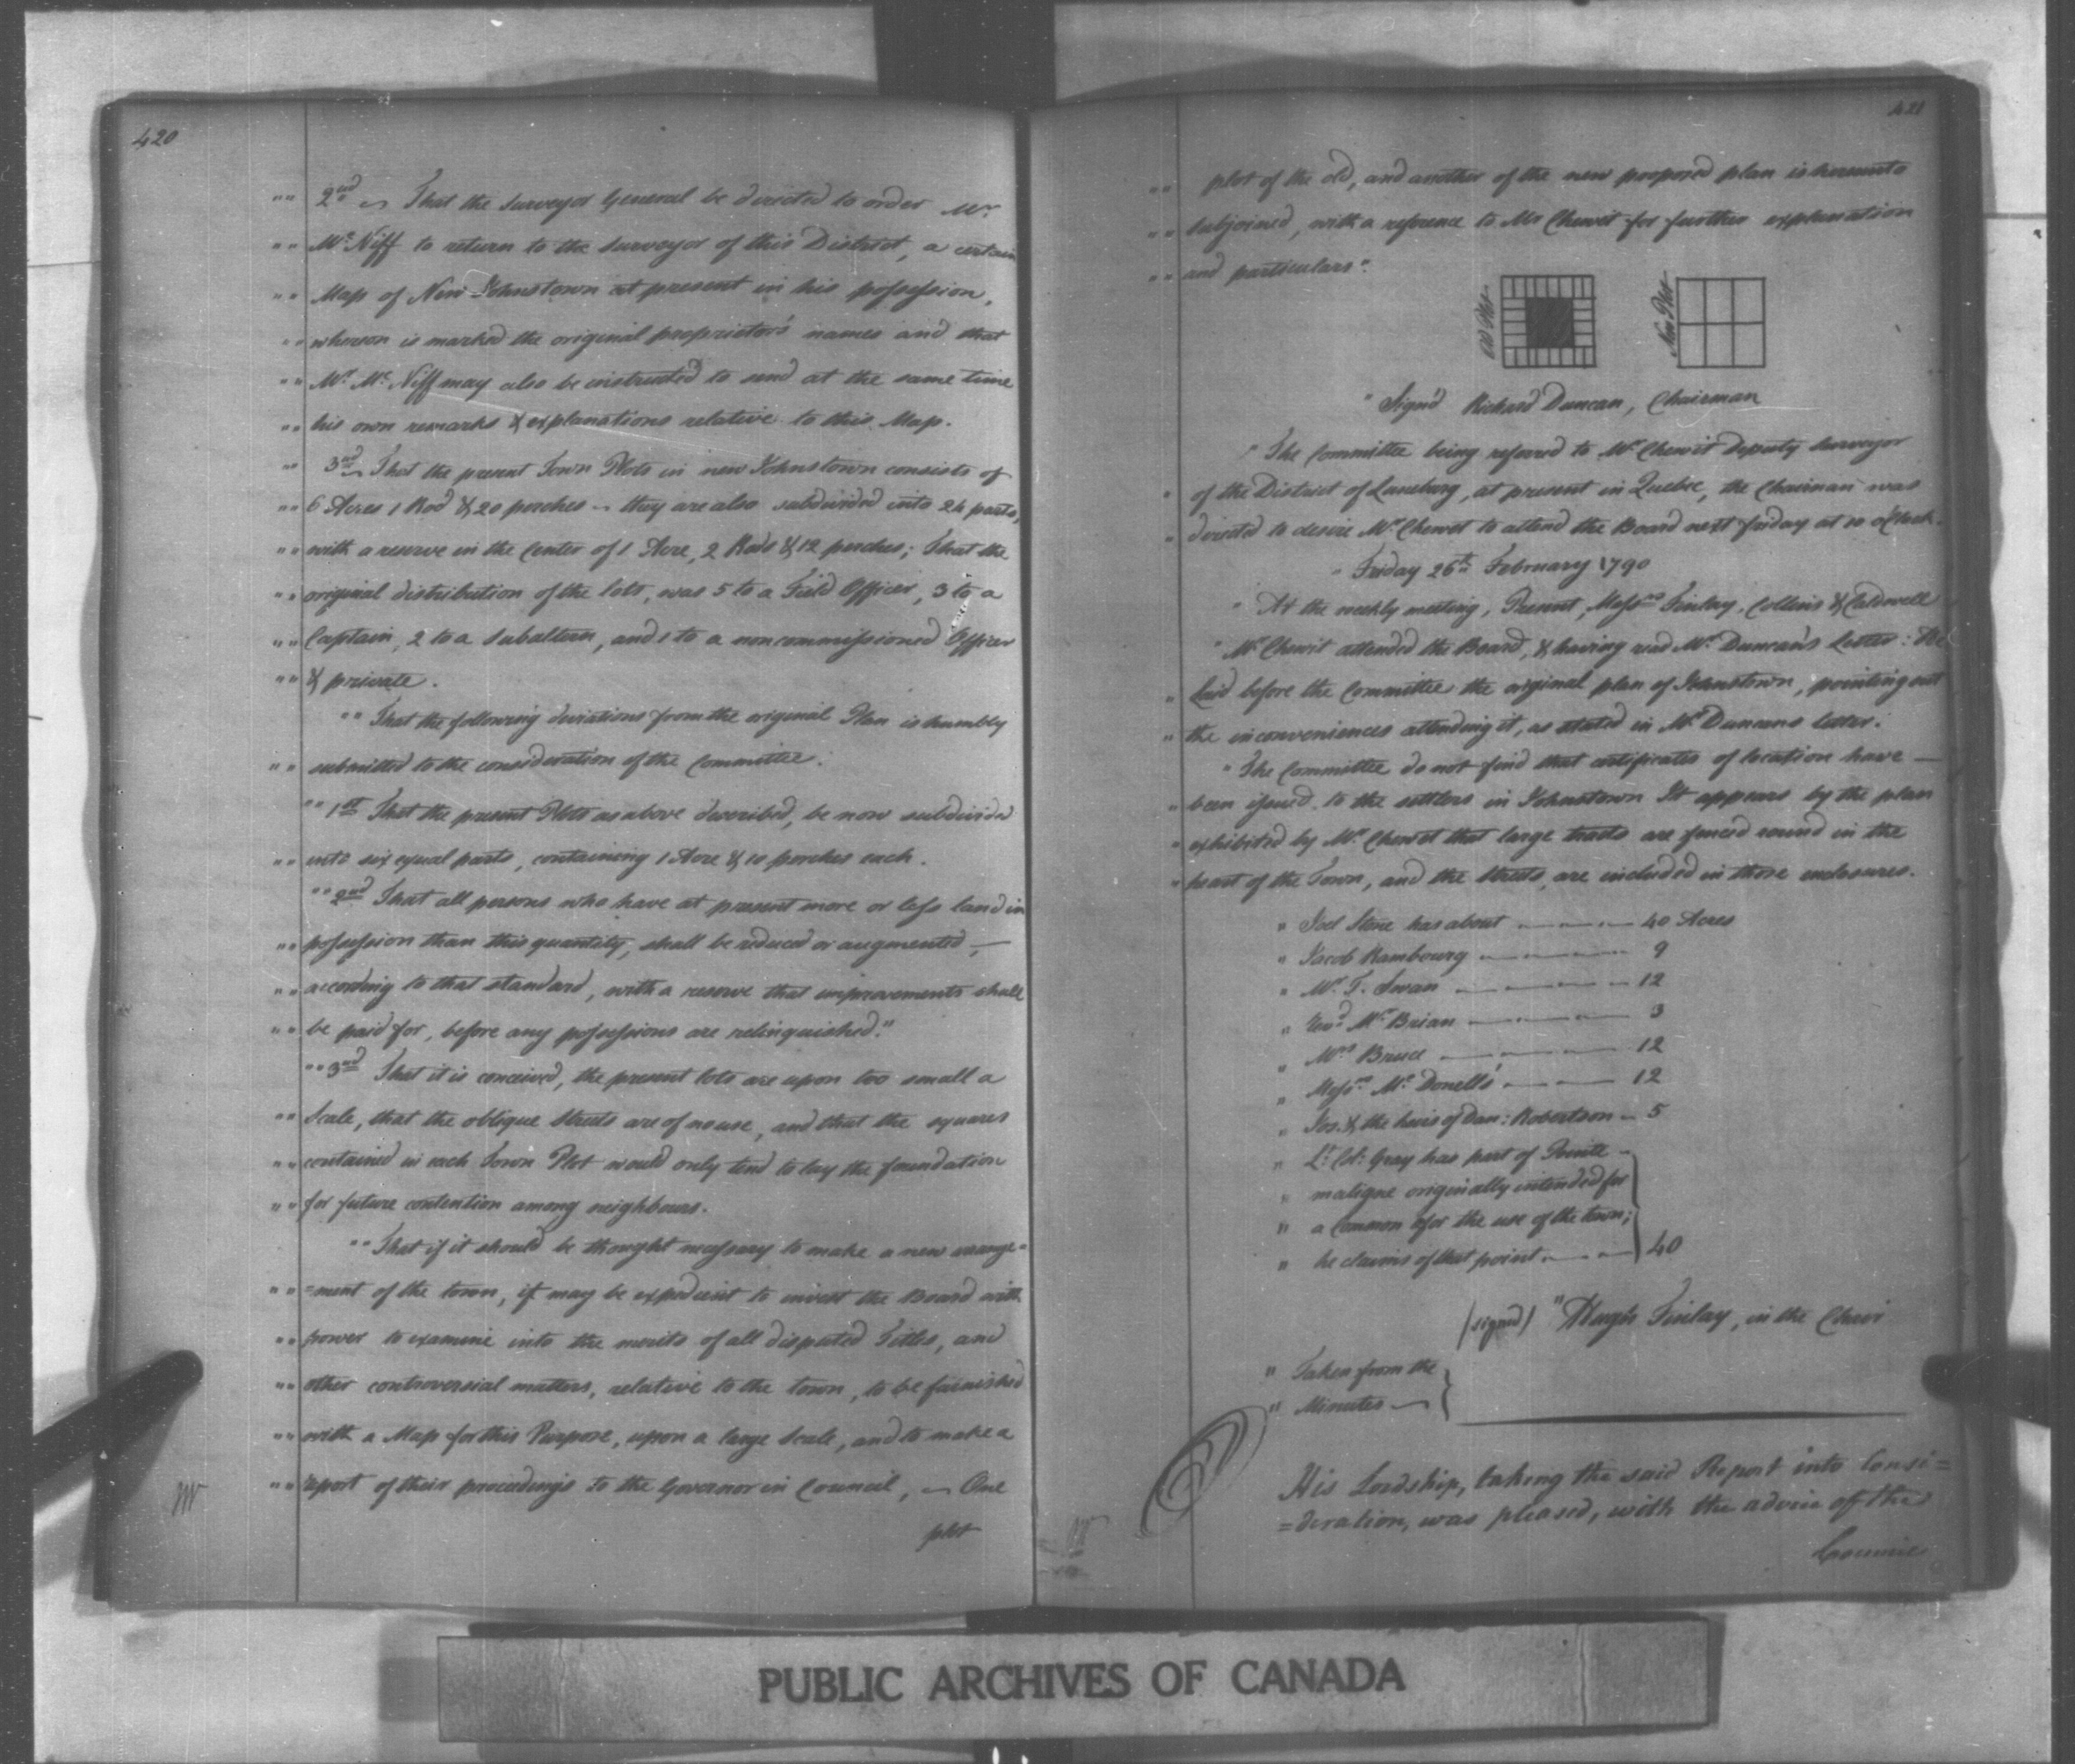 420
"" 2nd ~ That the Surveyor General be directed to order Mr
"" Mc Niff to return to the Surveyor of this District, a certain
"" Map of New Johnstown at present in his possession,
"" whereon is marked the original proprietor's names and that
"" Mr Mc Niff may also be instructed to send at the same time
"" his own remarks & explanations relative to this Map.
"" 3rd ~ That the present Town Plots in new Johnstown consists of
"" 6 Acres 1 Rod & 20 perches ~ they are also subdivided into 24 parts,
"" with a reserve in the Center of 1 Acre, 2 Rods & 12 perches; That the
"" original distribution of the lots, was 5 to a Field Officer, 3 to a
"" Captain, 2 to a Subaltern, and 1 to a noncommissioned Officer
"" & private.
"" That the following deviations from the original Plan is humbly
"" submitted to the consideration of the Committee.
"" 1st That the present Plots as above described, be now subdivided
"" into six equal parts, containing 1 Acre & 10 perches each.
"" 2nd That all persons who have at present more or less land in
"" possession than this quantity, shall be reduced or augmented, —
"" according to that standard, with a reserve that improvements shall
"" be paid for, before any possessions are relinquished."
"" 3rd That it is conceived, the present lots are upon too small a
"" Scale, that the oblique Streets are of no use, and that the squares
"" contained in each Town Plot would only tend to lay the foundation
"" for future contention among neighbours.
"" That if it should be thought necessary to make a new arrange=
"" =ment of the town, it may be expedient to invest the Board with
"" power to examine into the merits of all disputed Titles, and
"" other controversial matters, relative to the town, to be furnished
"" with a Map for this Purpose, upon a large Scale, and to make a
"" report of their proceedings to the Governor in Council, ~ One
plot
421
"" plot of the old, and another of the new proposed plan is hereunto
"" subjoined, with a reference to Mr Chewit for further explanation
"" and particulars".
Old Plot
New Plot
" Sign'd Richard Duncan, Chairman
" The Committee being referred to Mr Chewit deputy Surveyor
" of the District of Luneburg, at present in Quebec, the Chairman was
" directed to desire Mr Chewet to attend the Board next friday at 10 o'Clock.
" Friday 26th February 1790
" At the weekly meeting, Present, Messrs Finlay, Collins & Caldwell
" Mr Chewit attended the Board, & having read Mr Duncan's Letter: He
" laid before the Committee the original plan of Johnstown, pointing out
" the inconveniences attending it, as stated in Mr Duncans letter.
" The Committee do not find that certificates of location have —
" been issued to the settlers in Johnstown It appears by the plan
" exhibited by Mr Chewet that large tracts are fenced round in the
" heart of the Town, and the Streets, are included in those enclosures.
" Joel Stone has about — 40 Acres
" Jacob Rambourg — 9
" Mr T. Swan — 12
" Mc Brian — 3
" Mrs Bruce — 12
" Messrs Mc Donell's — 12
" Jos. & the heirs of Dan: Robertson — 5
" Lt Col: Gray has part of Pointe
" maligne originally intended for
" a Common & for the use of the town;
" he claims of that point — 40
(signed) "Hugh Finlay, in the Chair
" Taken from the
" Minutes ~
His Lordship, taking the said Report into Consi=
=deration, was pleased, with the advice of the
Council
PUBLIC ARCHIVES OF CANADA